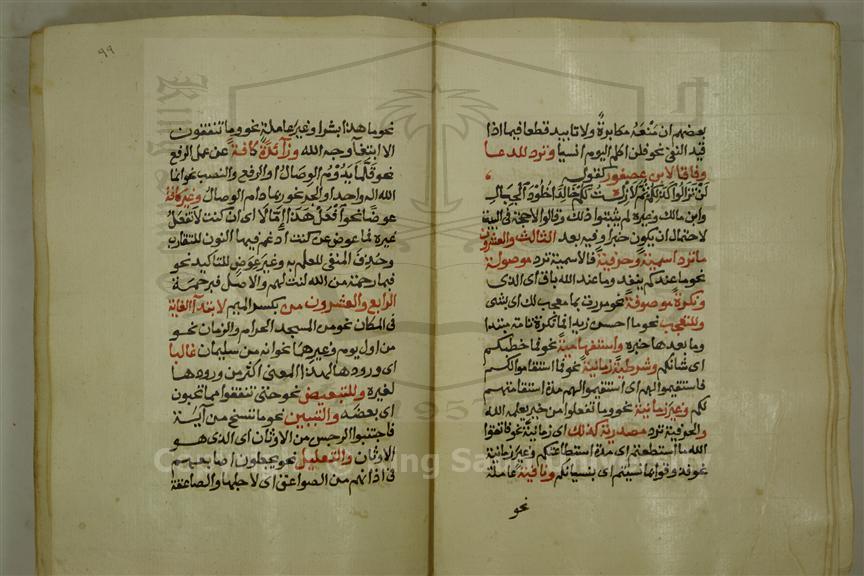 بعضهم ان منعه مكابرة ولا تابيد قطعا فيما اذا
قيد النفي نحو فلن اكلم اليوم انسيا وترد للدعا
وفاقا لابن عصفور كقوله
لن تزالوا كذلكم ثم لا زلت لكم خالدا خلود الجبال
وابن مالك وغيره لم يثبتوا ذلك وقالوا لا حجة في البيت
لاحتمال ان يكون خبرا وفيه بعد الثالث والعشرون
ما ترد اسمية وحرفية فالاسمية ترد موصولة
نحو ما عندكم ينفد وما عند الله باق اى الذى
ونكرة موصوفة نحو مررت بما معجب لك اى بشى
وللتعجب نحو ما احسن زيدا فما نكرة تامة مبتدا
وما بعدها خبره واستفهامية نحو فما خطبكم
اى شانكم وشرطية زمانية نحو فما استقاموا لكم
فاستقيموا لهم اى استقيموا لهم مدة استقامتهم
لكم وغير زمانية نحو وما تفعلوا من خير يعلمه الله
والحرفية ترد مصدرية كذلك اى زمانية نحو فاتقوا
الله ما استطعتم اى مدة استطاعتكم وغير زمانية
نحو فذوقوا بما نسيتم اى بنسيانكم ونافية عاملة
نحو
٩٩
نحو ما هذا بشرا وغير عاملة نحو وما تنفقون
الا ابتغآ وجه الله وزآئدة كافة عن عمل الرفع
نحو قلما يدوم الوصال او الرفع والنصب نحو انما
الله اله واحد او الجر نحو ربما دام الوصال وغير كافة
عوضا نحو افعل هذا إمّا لا اى ان كنت لا تفعل
غيره فما عوض عن كنت ادغم فيها النون للتقارب
وحذف المنفي للعلم به وغير عوض للتاكيد نحو
فبما رحمة من الله لنت لهم والاصل فبرحمة
الرابع والعشرون من بكسر الميم لابتدآ الغاية
فى المكان نحو من المسجد الحرام والزمان نحو
من اول يوم وغيرها نحو انه من سليمان غالبا
اى ورودها لهذا المعنى اكثر من ورودها
لغيره وللتبعيض نحو حتى تنفقوا مما تحبون
اى بعضه والتبيين نحو ما ننسخ من آية
فاجتنبوا الرجس من الاوثان اى الذى هو
الاوثان والتعليل نحو يجعلون اصابعهم
فى اذانهم من الصواعق اى لاجلها والصاعقة
1957